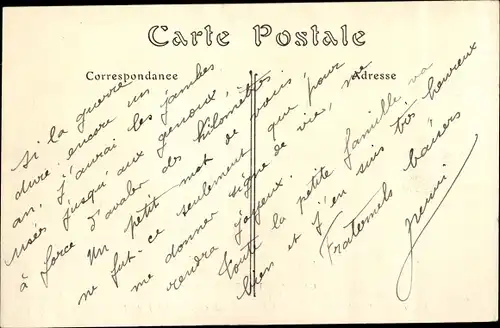 Carte Postale
Correspondance
Adresse
Si la guerre
dure encore un
an, j'aurai les jambes
usées jusqu'aux genoux,
à force d'avaler des kilomètres
Un petit mot de vous,
ne fut-ce seulement que pour
me donner signe de vie, me
rendra joyeux.
Toute la petite famille va
bien et j'en suis très heureux
Fraternels baisers